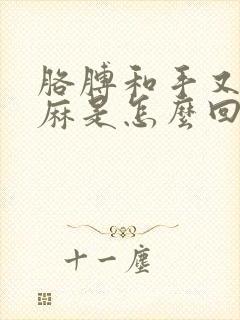 胳膊和手又
麻是怎麼回
十一塵